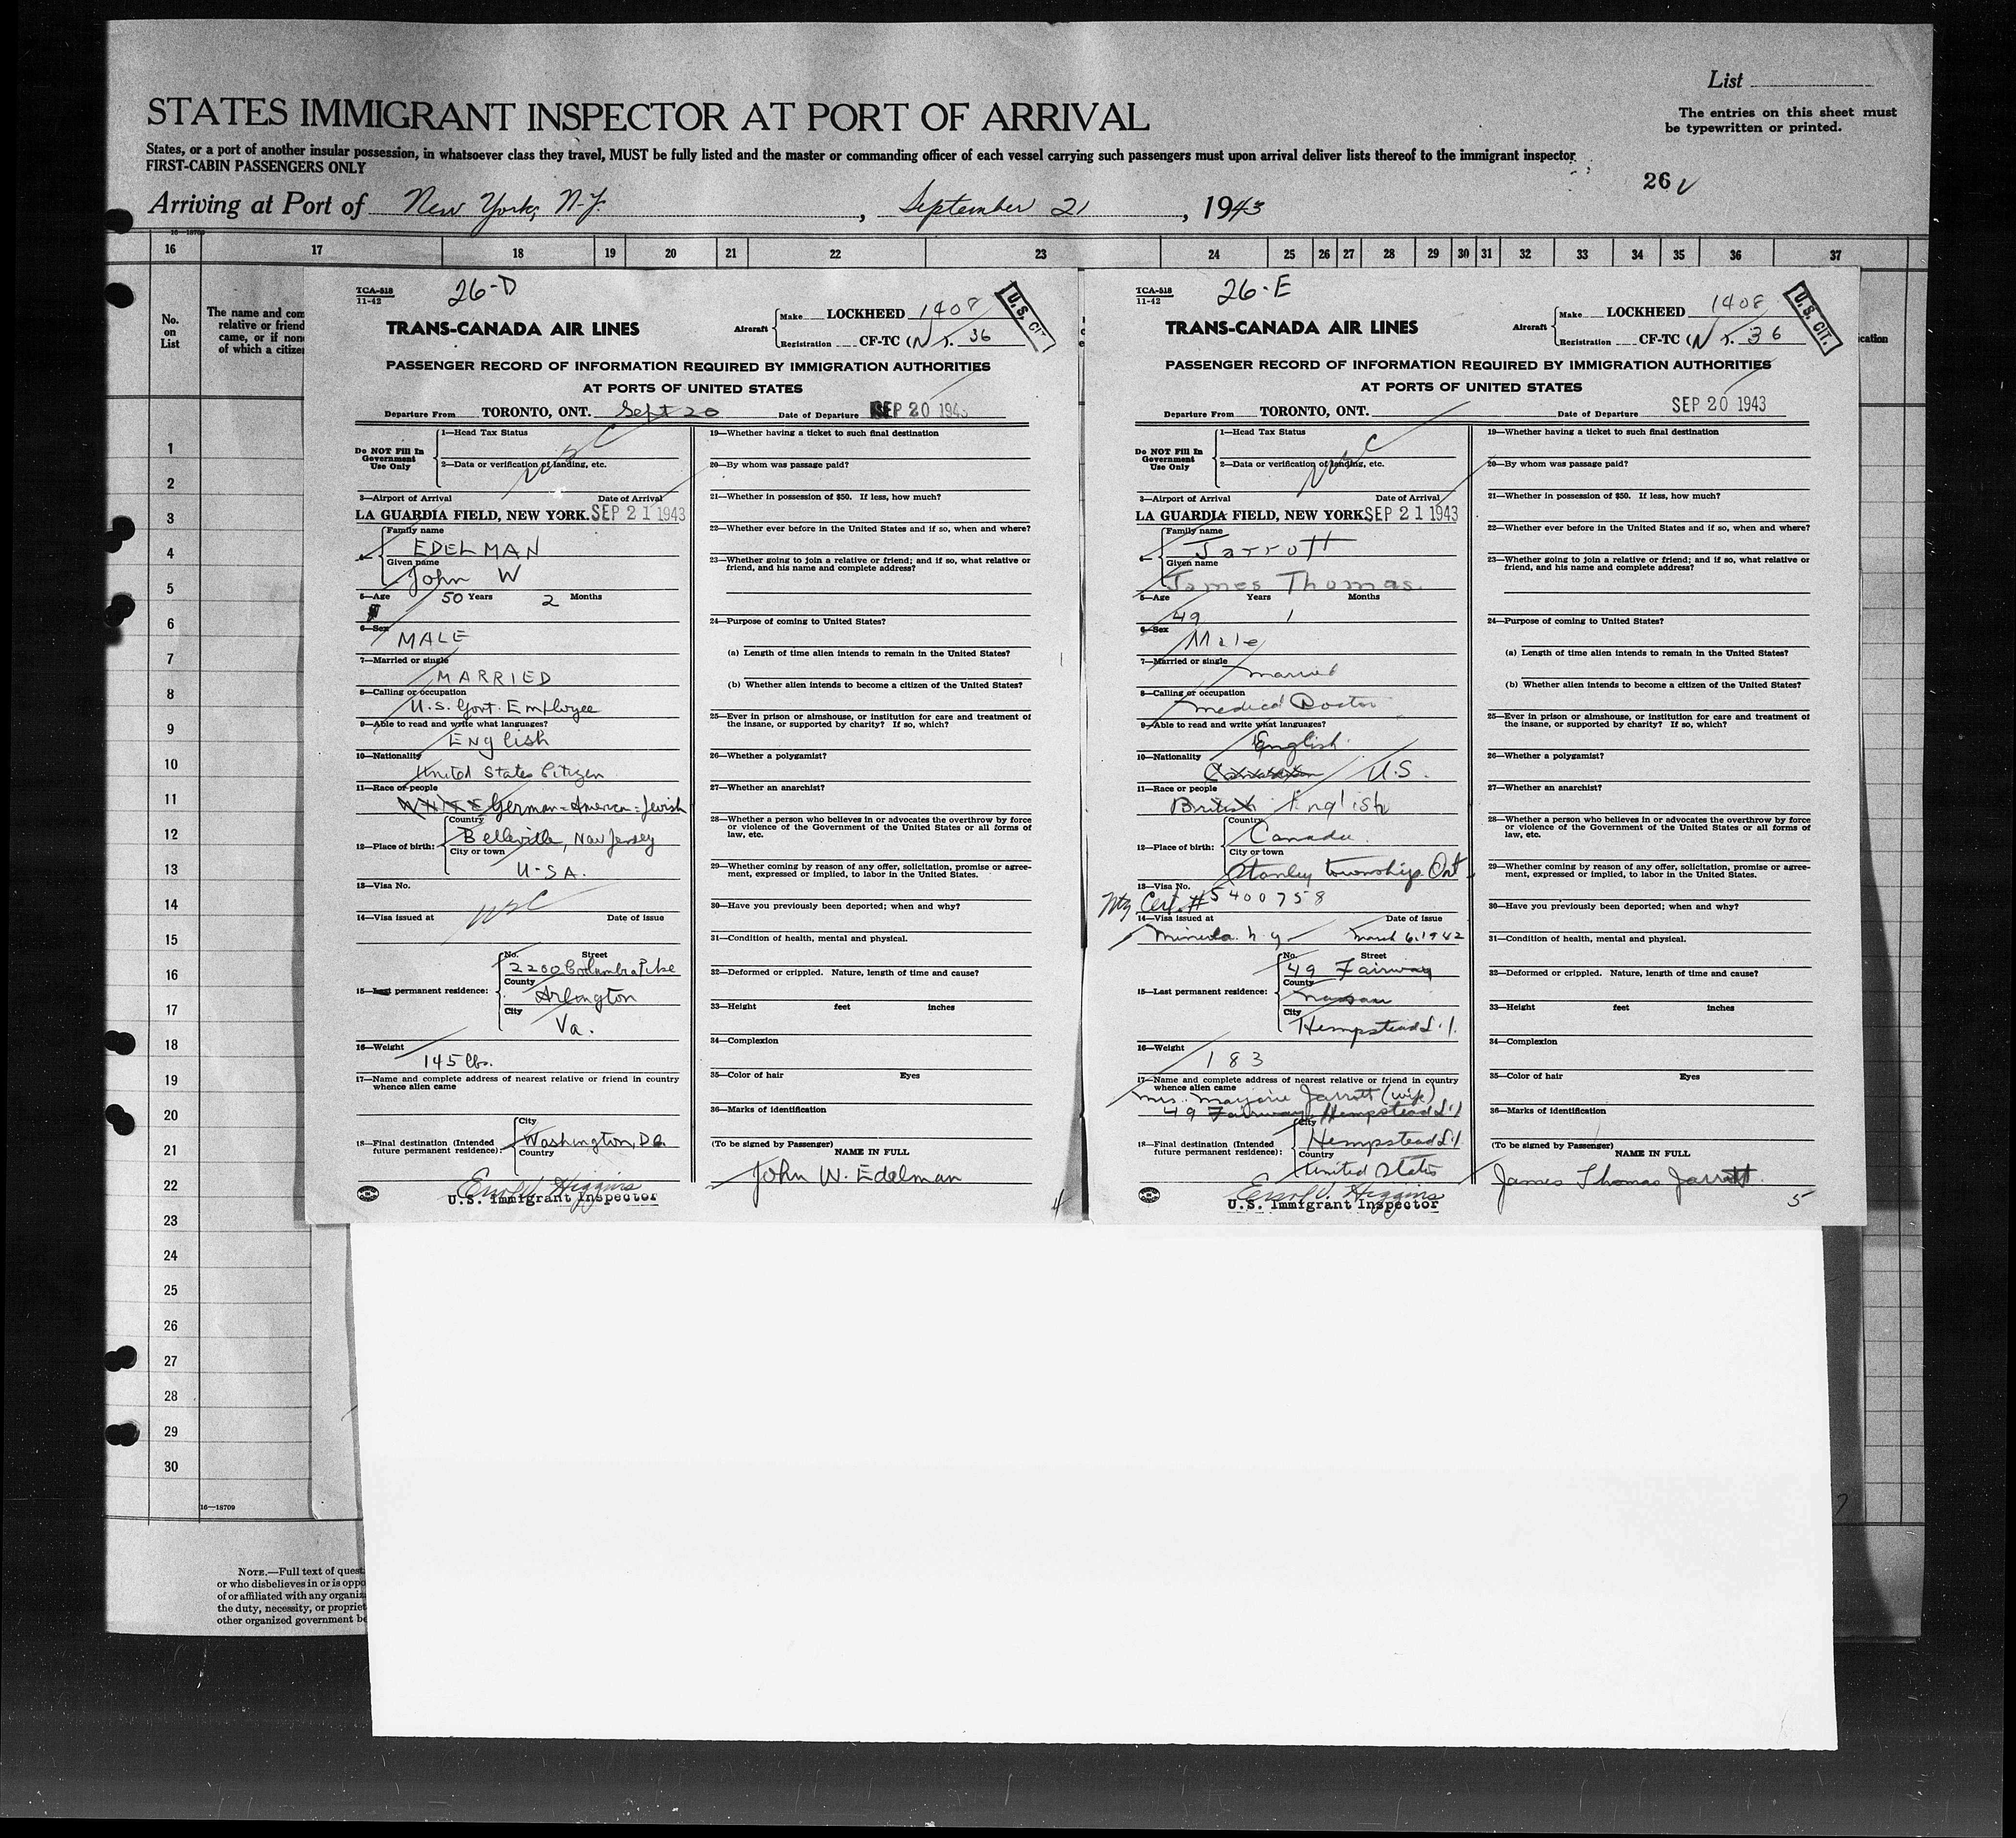 List
STATES IMMIGRANT INSPECTOR AT PORT OF ARRIVAL
The entries on this sheet must
be typewritten or printed.
States, or a port of another insular possession, in whatsoever class they travel, MUST be fully listed and the master or commanding officer of each vessel carrying such passengers must upon arrival deliver lists thereof to the immigrant inspector
FIRST-CABIN PASSENGERS ONLY
26
Arriving at Port of New York, N.Y. , September 21 , 1943
16—18709
16 17 18 19 20 21 22 23 24 25 26 27 28 29 30 31 32 33 34 35 36 37
No.
on
List
The name and com
relative or friend
came, or if none
of which a citize
cation
1
2
3
4
5
6
7
8
9
10
11
12
13
14
15
16
17
18
19
20
21
22
23
24
25
26
27
28
29
30
16—18709
NOTE.—Full text of quest
or who disbelieves in or is oppo
of or affiliated with any organiz
the duty, necessity, or propriet
other organized government be
TCA-518
11-42
26-D
TRANS-CANADA AIR LINES
Aircraft
Make LOCKHEED 1408
Registration CF-TC (N) T. 36
U.S. CIT.
PASSENGER RECORD OF INFORMATION REQUIRED BY IMMIGRATION AUTHORITIES
AT PORTS OF UNITED STATES
Departure From TORONTO, ONT. Sept 20 Date of Departure SEP 20 1943
Do NOT Fill In
Government
Use Only
1—Head Tax Status
USC
2—Data or verification of landing, etc.
3—Airport of Arrival Date of Arrival
LA GUARDIA FIELD, NEW YORK. SEP 21 1943
4—
Family name
EDELMAN
Given name
John W
5—Age 50 Years 2 Months
6—Sex
MALE
7—Married or single
MARRIED
8—Calling or occupation
U.S. Govt. Employee
9—Able to read and write what languages?
English
10—Nationality
United States Citizen
11—Race or people
WHITE German=America=Jewish
12—Place of birth:
Country
Belleville, New Jersey
City or town
U.S.A.
13—Visa No.
USC
14—Visa issued at Date of issue
15—Last permanent residence:
No. Street
2200 Columbia Pike
County
Arlington
City
Va.
16—Weight
145 lbs.
17—Name and complete address of nearest relative or friend in country
whence alien came
18—Final destination (Intended
future permanent residence):
City
Washington, D.C.
Country
Errol V. Higgins
U.S. Immigrant Inspector
19—Whether having a ticket to such final destination
20—By whom was passage paid?
21—Whether in possession of $50. If less, how much?
22—Whether ever before in the United States and if so, when and where?
23—Whether going to join a relative or friend; and if so, what relative or
friend, and his name and complete address?
24—Purpose of coming to United States?
(a) Length of time alien intends to remain in the United States?
(b) Whether alien intends to become a citizen of the United States?
25—Ever in prison or almshouse, or institution for care and treatment of
the insane, or supported by charity? If so, which?
26—Whether a polygamist?
27—Whether an anarchist?
28—Whether a person who believes in or advocates the overthrow by force
or violence of the Government of the United States or all forms of
law, etc.
29—Whether coming by reason of any offer, solicitation, promise or agree-
ment, expressed or implied, to labor in the United States.
30—Have you previously been deported; when and why?
31—Condition of health, mental and physical.
32—Deformed or crippled. Nature, length of time and cause?
33—Height feet inches
34—Complexion
35—Color of hair Eyes
36—Marks of identification
(To be signed by Passenger)
NAME IN FULL
John W. Edelman
4
TCA-518
11-42
26-E
TRANS-CANADA AIR LINES
Aircraft
Make LOCKHEED 1408
Registration CF-TC (N) T. 36
U.S. CIT.
PASSENGER RECORD OF INFORMATION REQUIRED BY IMMIGRATION AUTHORITIES
AT PORTS OF UNITED STATES
Departure From TORONTO, ONT. Date of Departure SEP 20 1943
Do NOT Fill In
Government
Use Only
1—Head Tax Status
USC
2—Data or verification of landing, etc.
3—Airport of Arrival Date of Arrival
LA GUARDIA FIELD, NEW YORK SEP 21 1943
4—
Family name
Jarrott
Given name
James Thomas.
5—Age Years Months
49 1
6—Sex
Male
7—Married or single
married
8—Calling or occupation
medical Doctor
9—Able to read and write what languages?
English
10—Nationality
Canadian U.S.
11—Race or people
British English
12—Place of birth:
Country
Canada
City or town
Stanley township. Ont
13—Visa No.
Ntz Cert. # 5400758
14—Visa issued at Date of issue
Mineola. N.Y. March 6, 1942
15—Last permanent residence:
No. Street
49 Fairway
County
Nassau
City
Hempstead L.I.
16—Weight
183
17—Name and complete address of nearest relative or friend in country
whence alien came
Mrs. Marjorie Jarrott (wife)
49 Fairway, Hempstead L.I
18—Final destination (Intended
future permanent residence):
City
Hempstead L.I.
Country
United States
Errol V. Higgins
U.S. Immigrant Inspector
19—Whether having a ticket to such final destination
20—By whom was passage paid?
21—Whether in possession of $50. If less, how much?
22—Whether ever before in the United States and if so, when and where?
23—Whether going to join a relative or friend; and if so, what relative or
friend, and his name and complete address?
24—Purpose of coming to United States?
(a) Length of time alien intends to remain in the United States?
(b) Whether alien intends to become a citizen of the United States?
25—Ever in prison or almshouse, or institution for care and treatment of
the insane, or supported by charity? If so, which?
26—Whether a polygamist?
27—Whether an anarchist?
28—Whether a person who believes in or advocates the overthrow by force
or violence of the Government of the United States or all forms of
law, etc.
29—Whether coming by reason of any offer, solicitation, promise or agree-
ment, expressed or implied, to labor in the United States.
30—Have you previously been deported; when and why?
31—Condition of health, mental and physical.
32—Deformed or crippled. Nature, length of time and cause?
33—Height feet inches
34—Complexion
35—Color of hair Eyes
36—Marks of identification
(To be signed by Passenger)
NAME IN FULL
James Thomas Jarrott.
5